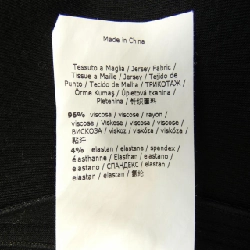 Made in China
Tessuto a Maglia / Jersey Fabric /
Tissue a Maille / Jersey / Tejido de
Punto / Tecido de Malha / ТРИКОТАЖ /
Örme Kumaş / Úpletová tkanina /
Pletenina / 针织面料
96% viscosa / viscose / rayon /
viscose / Viskose / viscosa / viscose /
ВИСКОЗА / viskoz / viskóza / viskoza /
粘纤
4% elastan / elastane / spandex /
élasthanne / Elasthan / elastano /
elastano / СПАНДЕКС / elastan /
elastan / elastan / 氨纶